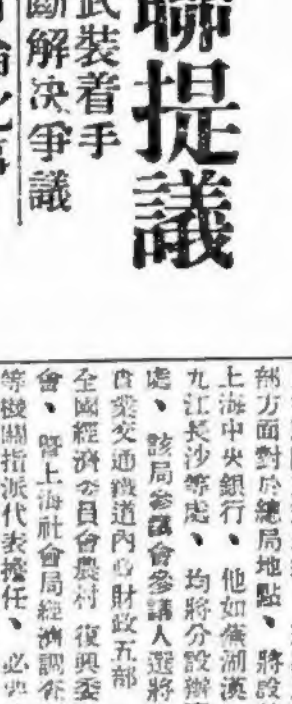 聯提議
武裝着手
斷解決爭議
部方面對於總局地點、將設
上海中央銀行、他如蕪湖漢
九江長沙等處、均將分設辦
處、該局參議會參議人選將
實業交通鐵道內政財政五部
全國經濟委員會農村復興委
會、暨上海社會局經濟調查
等機關指派代表擔任、必要